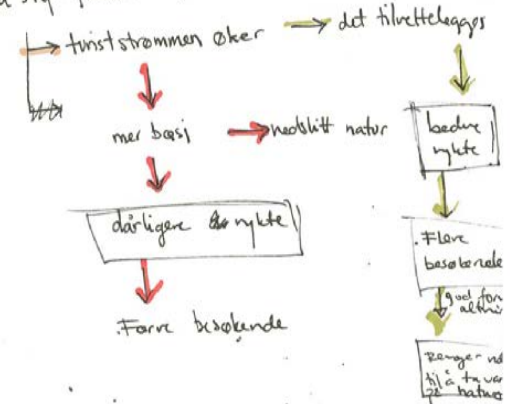 turiststrømmen øker
det tilrettelegges
mer bæsj
nedslitt natur
bedre
rykte
dårligere rykte
Flere
besøkende
god for
Færre besøkende
Penger nå
til å ta var
på natur